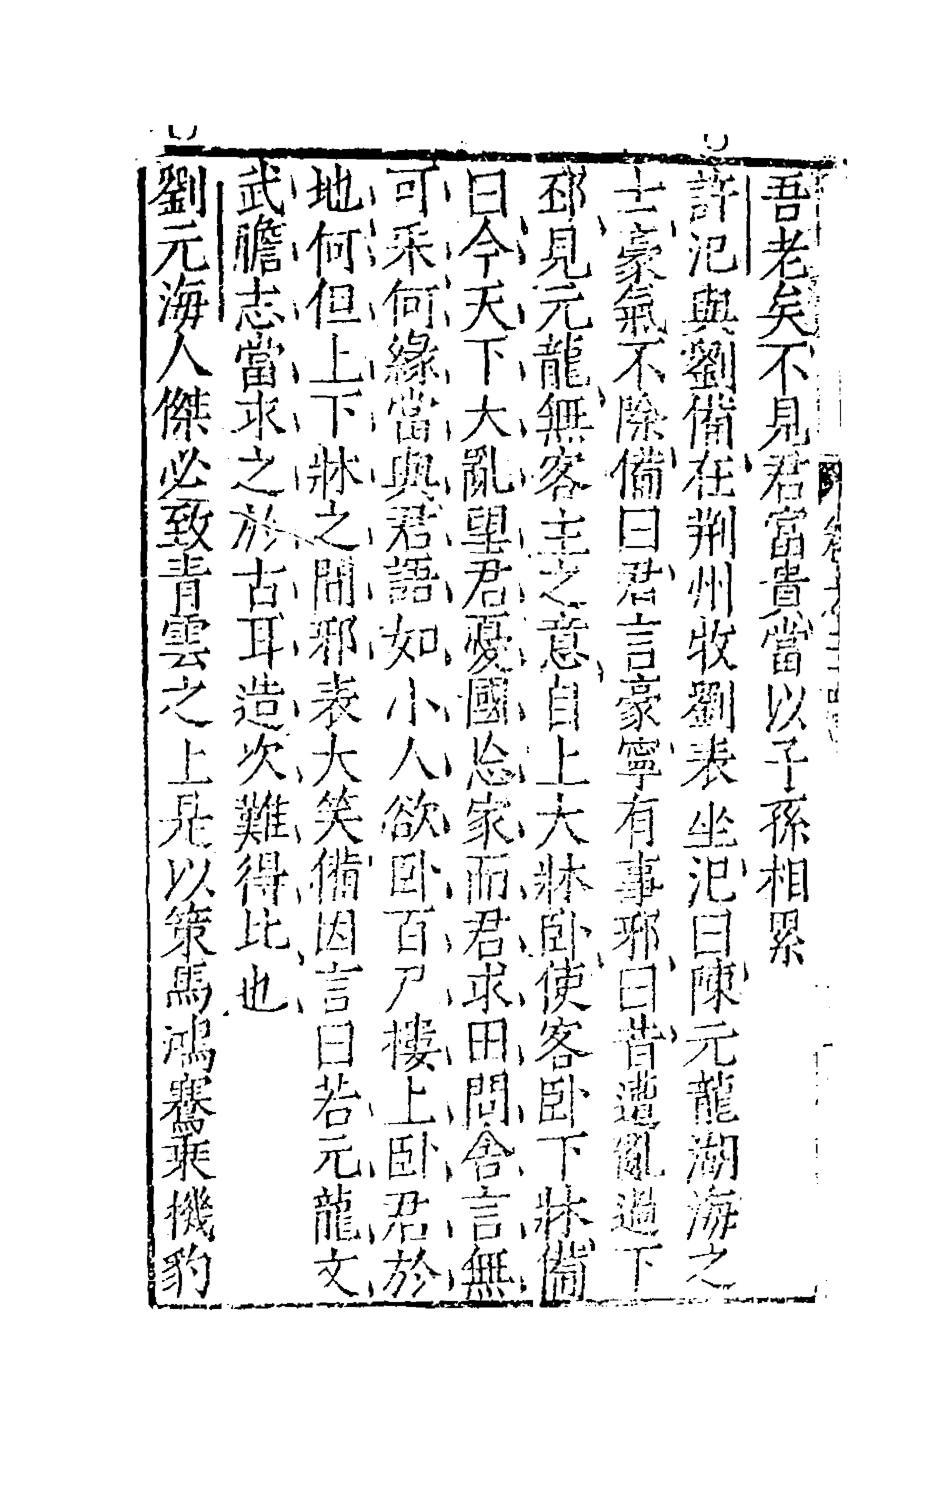 吾老矣不見君富貴當以子孫相累
許汜與劉備在荆州牧劉表坐汜曰陳元龍湖海之
士豪氣不除備曰君言豪寧有事邪曰昔遭亂過下
邳見元龍無客主之意自上大牀臥使客臥下牀備
曰今天下大亂望君憂國忘家而君求田問舍言無
可采何緣當與君語如小人欲臥百尺樓上臥君於
地何但上下牀之間邪表大笑備因言曰若元龍文
武膽志當求之於古耳造次難得比也
劉元海人傑必致青雲之上是以策馬鴻騫乘機豹